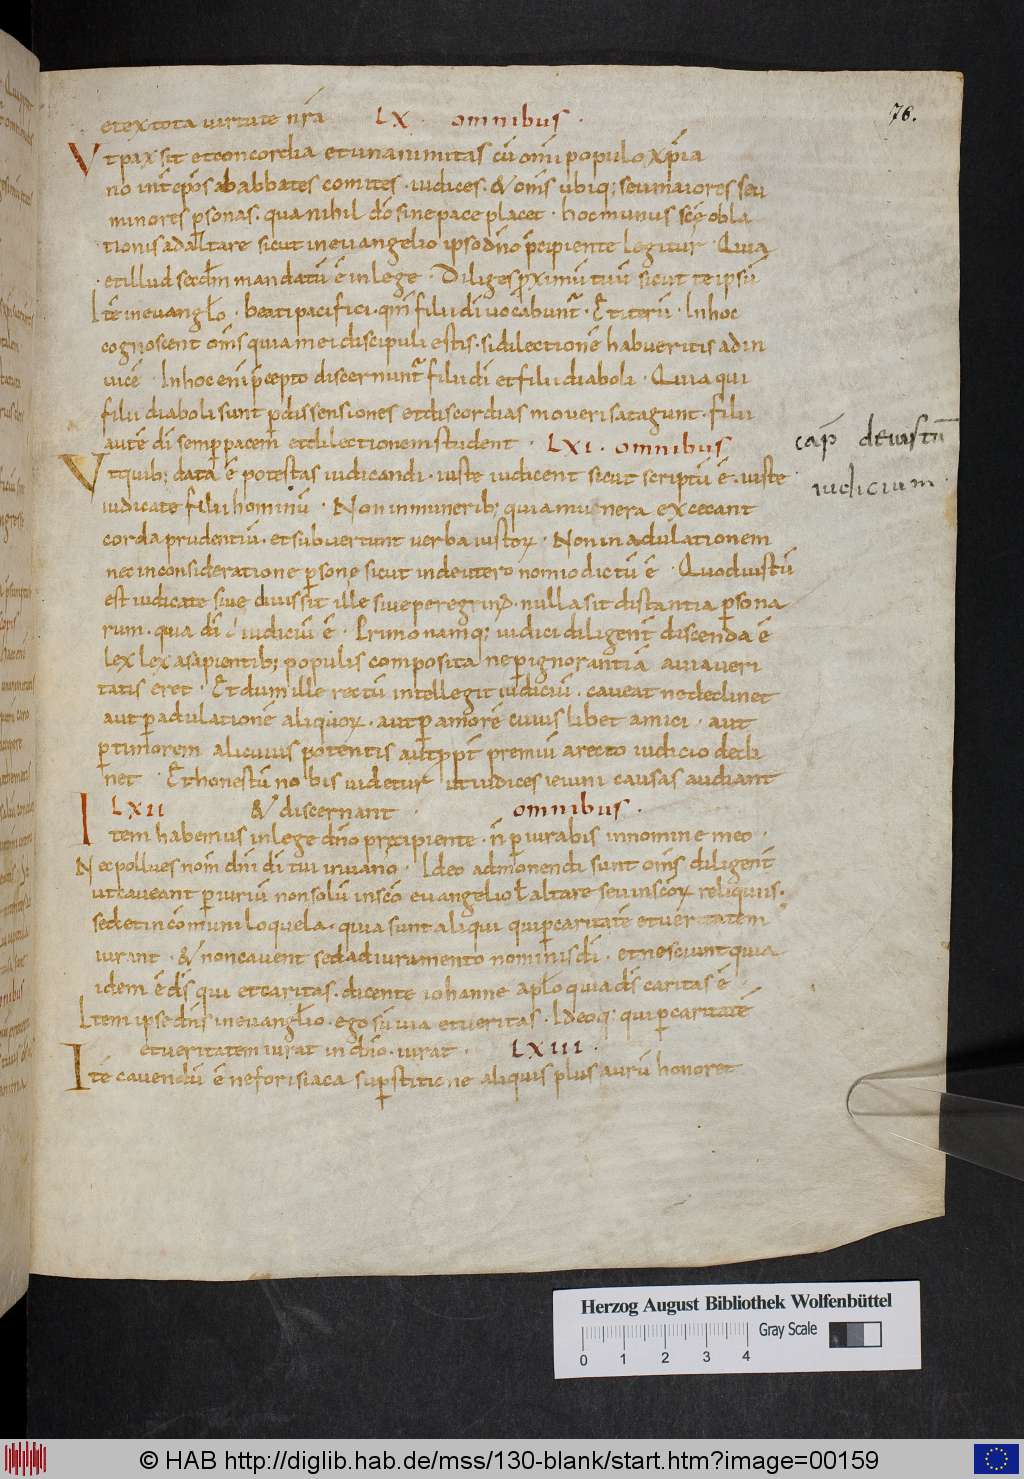 76.
et ex tota virtute nr̄a LX. omnibus.
Ut pax sit et concordia et unanimitas cū om̄i populo xp̄ia
no int̄ ep̄os ab abbates comites . iudices . & om̄s ubiq; seu maiores seu
minores p̱sonas . quia nihil d̄o sine pace placet . hoc munus sc̄ę obla
tionis ad altare sicut in euangelio ipso dn̄o p̄cipiente legitur . Quia
. et illud secdm̄ mandatū ē in lege . Diliges p̱ximū tuū sicut te ipsū
Itē in euangl̄o . beati pacifici . qm̄ filii di uocabunt̄ . Et iterū . In hoc
cognoscent om̄s quia mei discipuli estis . si dilectionē habueritis ad in
uicē . In hoc eni p̄cepto discernunt̄ filii di et filii diaboli . Quia qui
filii diaboli sunt p̱ dissensiones et discordias moueri satagunt . filii
autē di semp̱ pacem et dilectionem student . LXI . omnibus
cap̄ de iustū
iudicium
Ut quib; data ē potestas iudicandi . iuste iudicent sicut scriptū ē . iuste
iudicate filii hominū . Non in munerib; quia munera excecant
corda prudentiū . et subuertunt uerba iustoꝝ . Non in adulationem
nec in consideratione p̱sonę sicut in deutero nomio dictū ē . Quod iustū
est iudicate siue ciuis sit ille siue peregrin᷒ . nulla sit distantia p̱sona
rum . quia di iudiciū ē . Primo namq; iudici diligent̄ discenda ē
lex lex a sapientib; populis composita ne p̱ ignorantiā a uia ueri
tatis erret . Et dum ille rectū intellegit iudiciū . caueat ne declinet
aut p̱ adulationē aliquoꝝ . aut p̱ amorē cuius libet amici . aut
p̱ timorem alicuius potentis aut ppt̄ premiū a recto iudicio decli
net . Et honestū nobis uidetur ut iudices ieiuni causas audiant
LXII & discernant omnibus .
Item habemus in lege dn̄o precipiente . n̄ p̱iurabis in nomine meo .
Nec pollues nom̄ dn̄i di tui in uano . Ideo admonendi sunt om̄s diligent̄
ut caueant p̱iuriū non solū in sc̄o euangelio ł altare seu in sc̄oꝝ reliquiis .
sed et in comuni loquela . quia sunt aliqui qui p̱ caritatē et ueritatem
iurant . & non cauent sed ad iuramento nominis di . et nesciunt quia
idem ē d̄s qui et caritas . dicente iohanne apl̄o quia d̄s caritas ē .
Item ipse dn̄s in euangl̄io . ego sū uia et ueritas . Ideoq; qui p̱ caritatē
et ueritatem iurat in dn̄o . iurat . LXIII .
Itē cauendū ē ne forisiaca sup̱stitione aliquis plus aurū honoret
Herzog August Bibliothek Wolfenbüttel
Gray Scale
0 1 2 3 4
© HAB http://diglib.hab.de/mss/130-blank/start.htm?image=00159